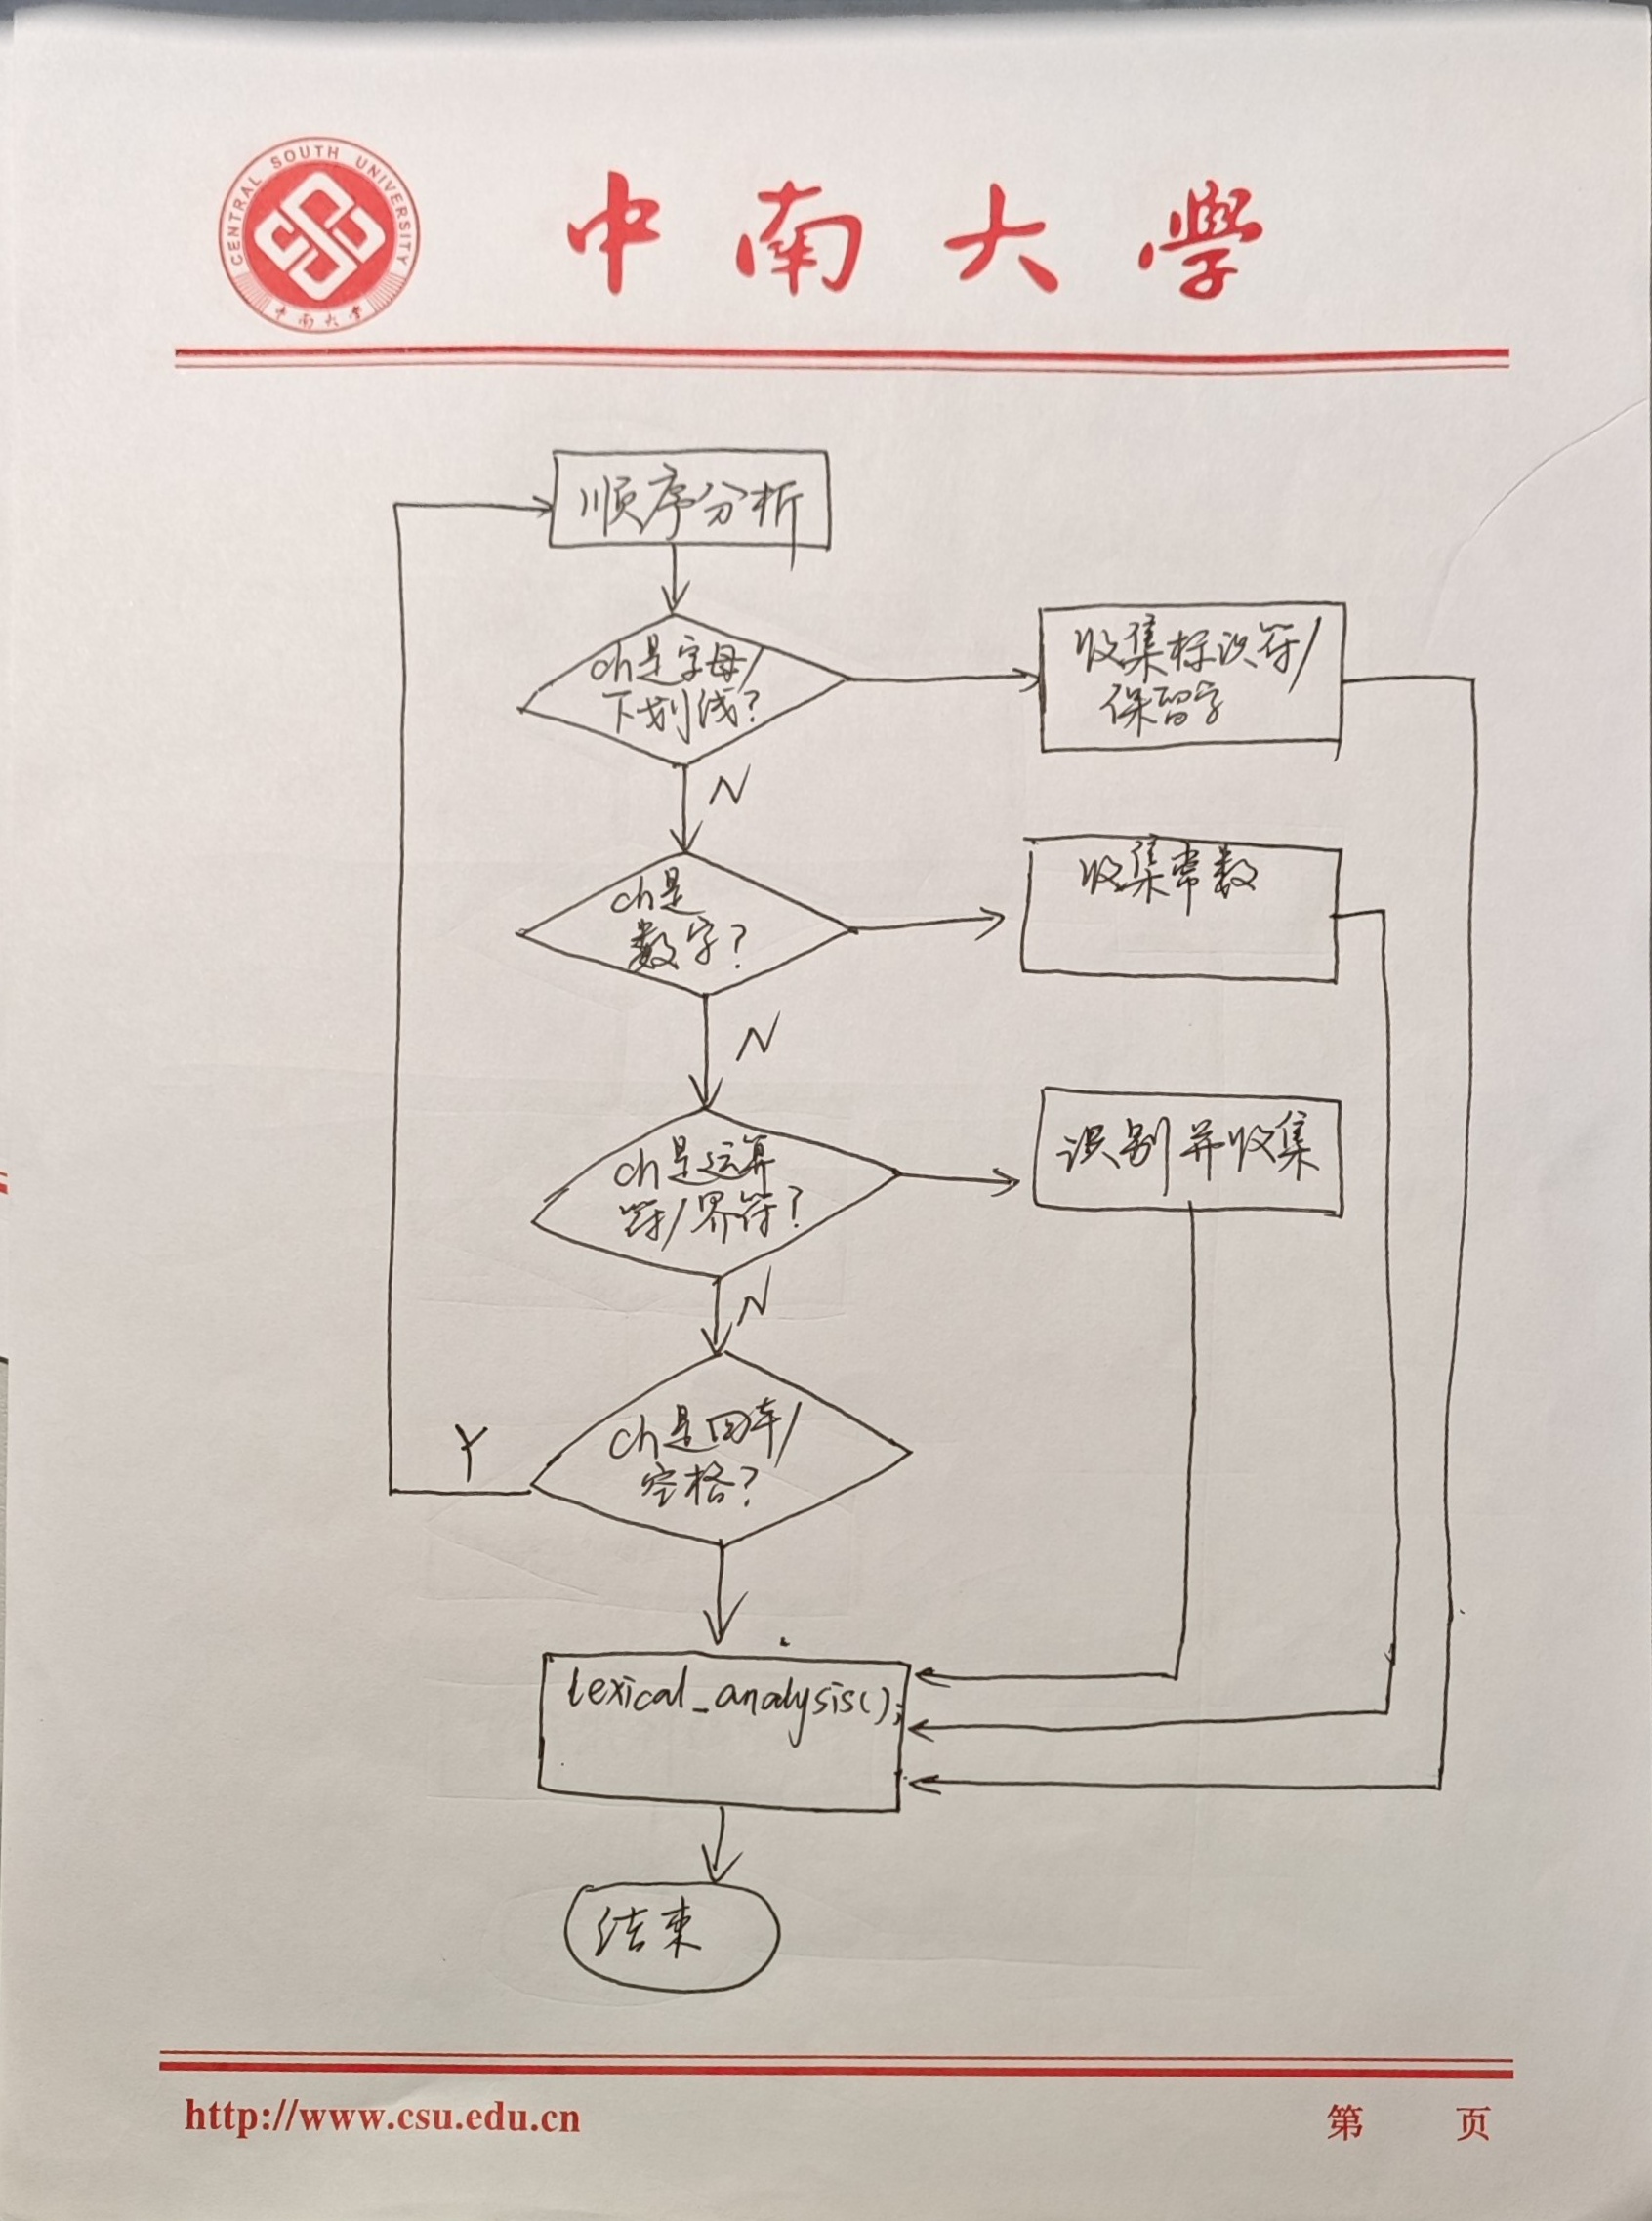 CENTRAL SOUTH UNIVERSITY
中南大学
中南大學
顺序分析
ch是字母/
下划线?
收集标识符/
保留字
N
ch是
数字?
收集常数
N
ch是运算
符/界符?
识别并收集
N
ch是回车/
空格?
Y
lexical_analysis();
结束
http://www.csu.edu.cn
第 页